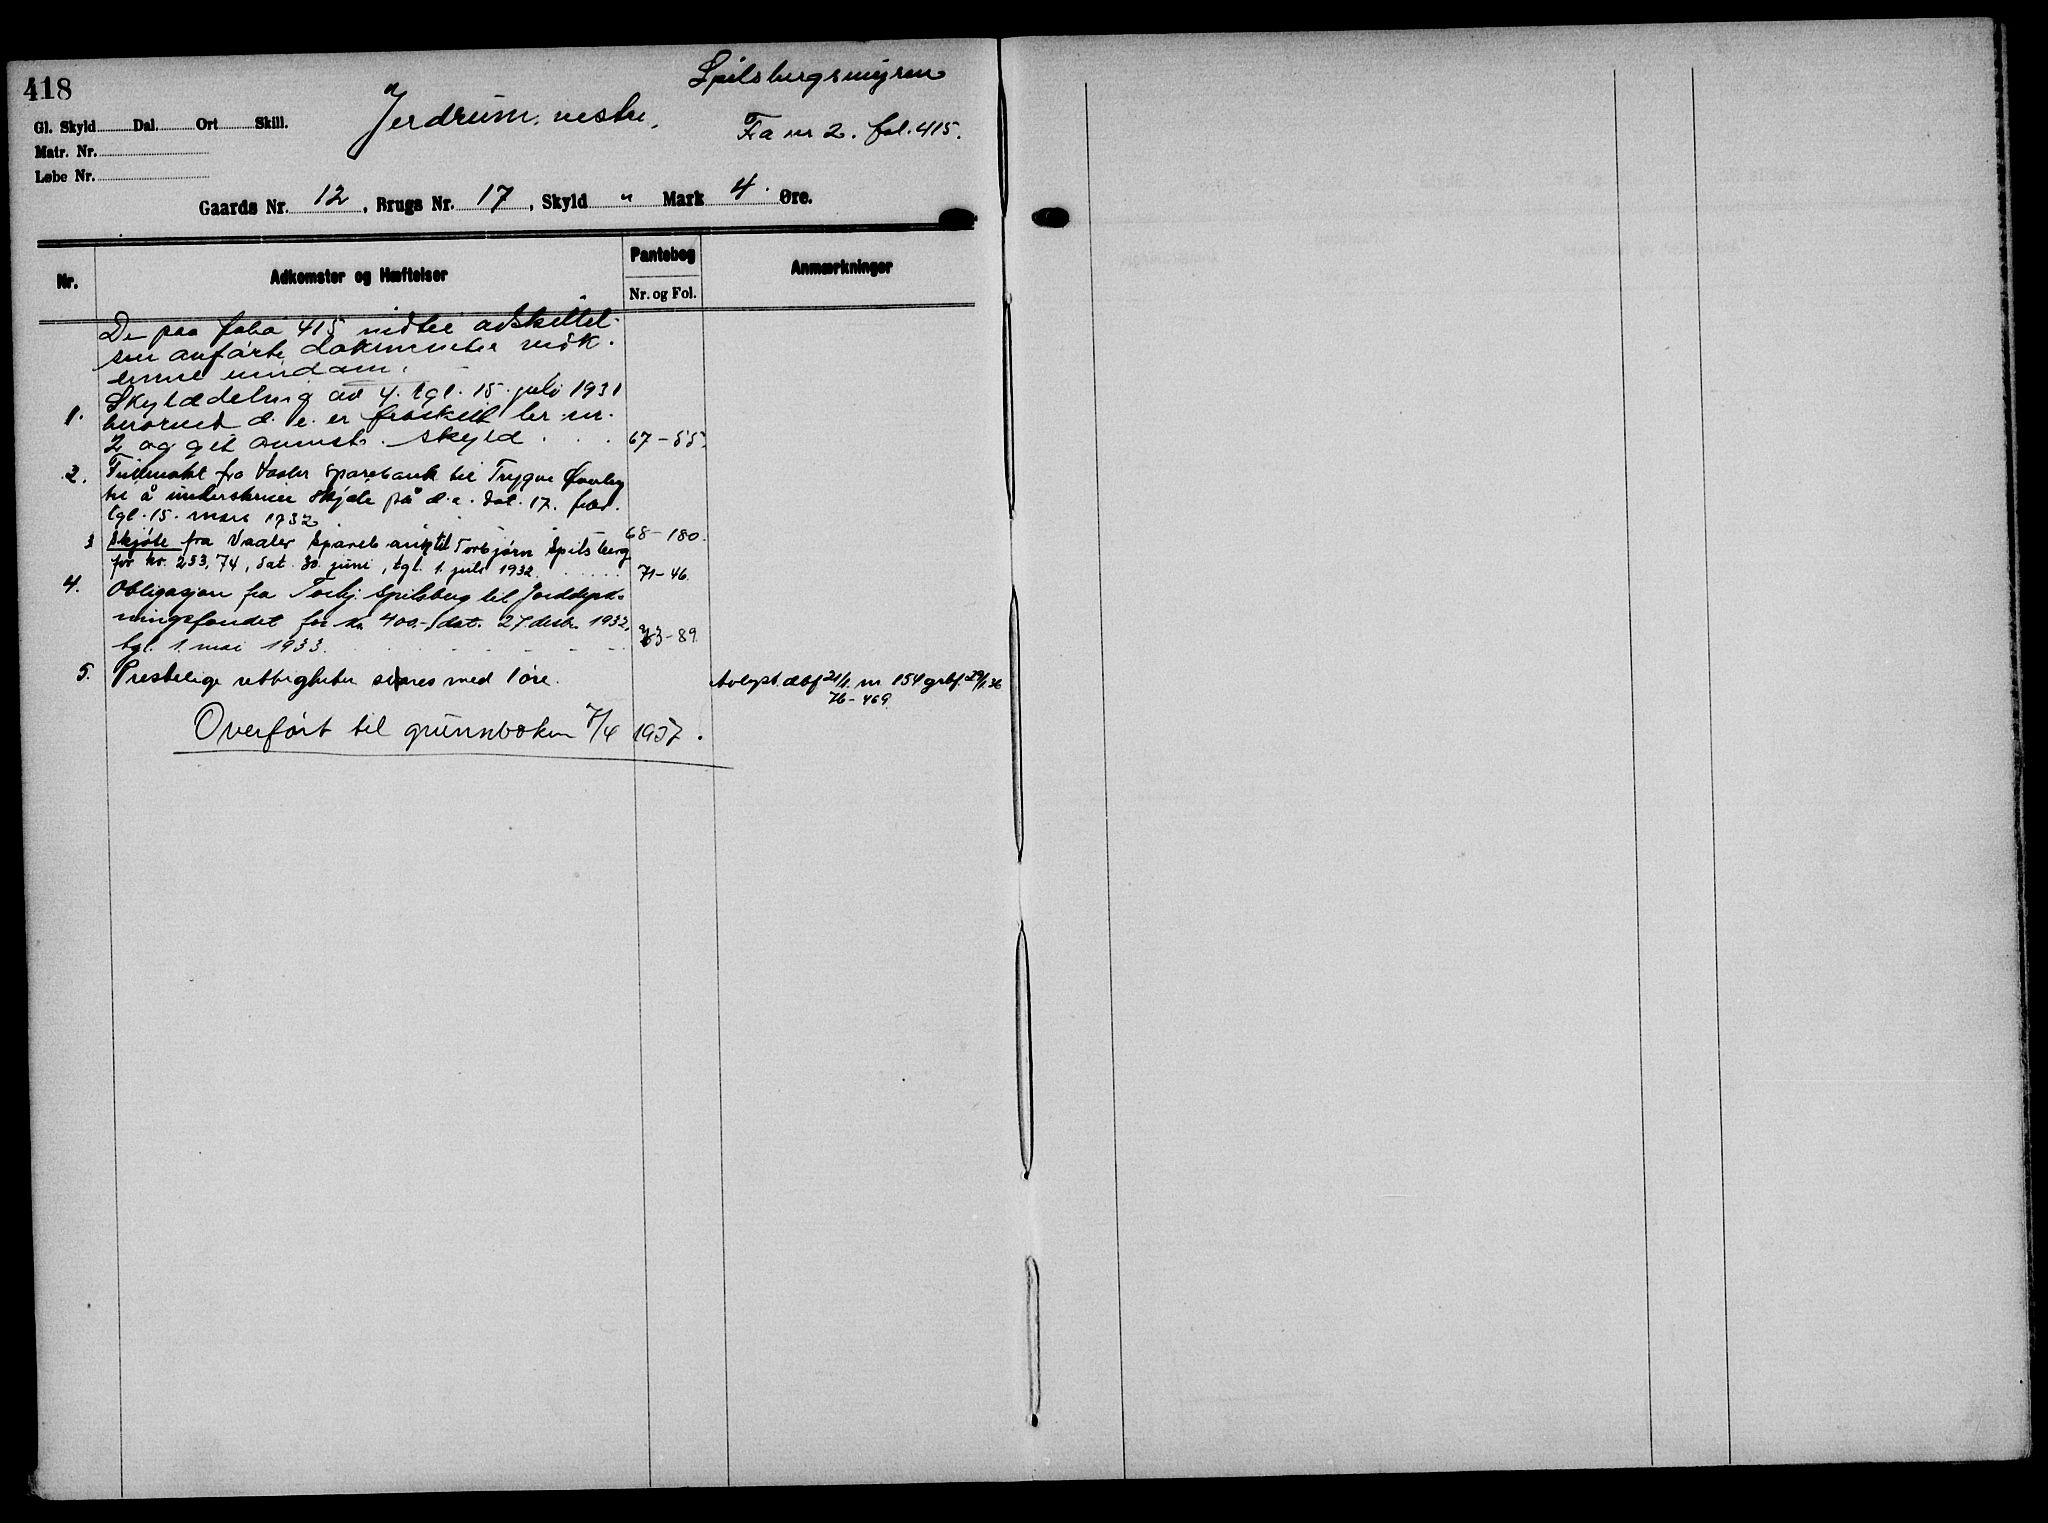 418
Spilsbergsmyren
Jerdrum vestre,
Fra nr 2. fol. 415.
Gl. Skyld Dal. Ort Skill.
Matr. Nr.
Løbe Nr.
Gaards Nr. 12, Brugs Nr. 17, Skyld " Mark 4 Øre.
Nr. Adkomster og Hæftelser Pantebog Anmærkninger
Nr. og Fol.
De paa folio 415 indtil adskillel-
sen anførte dokumenter vedk.
1. Skylddeling av 4. tgl. 15. juli 1931
hvorved d. e. er fraskilt br. nr.
2 og git ovennt. skyld . . . 67-55.
2. Fullmakt fra Vaaler Sparebank til Trygve
til å underskrive skjøte på d. e. dat. 17. febr.
tgl. 15. mars 1932 68-180.
3 Skjøte fra Vaaler Sparebank til Torbjørn Spilsberg
for kr. 253,74, dat. 30. juni, tgl. 1. juli 1932. 71-46.
4. Obligasjon fra Torbj. Spilsberg til Jorddyrk-
ningsfondet for kr 400.- dat. 27. desbr. 1932,
tgl. 1. mai 1933. 73-89.
5. Prestelige rettigheter svares med 1 øre. Avløyst. dbf 21/1. nr 154 grbf. 29/1.36
76-469
Overført til grunnboken 7/4 1937.